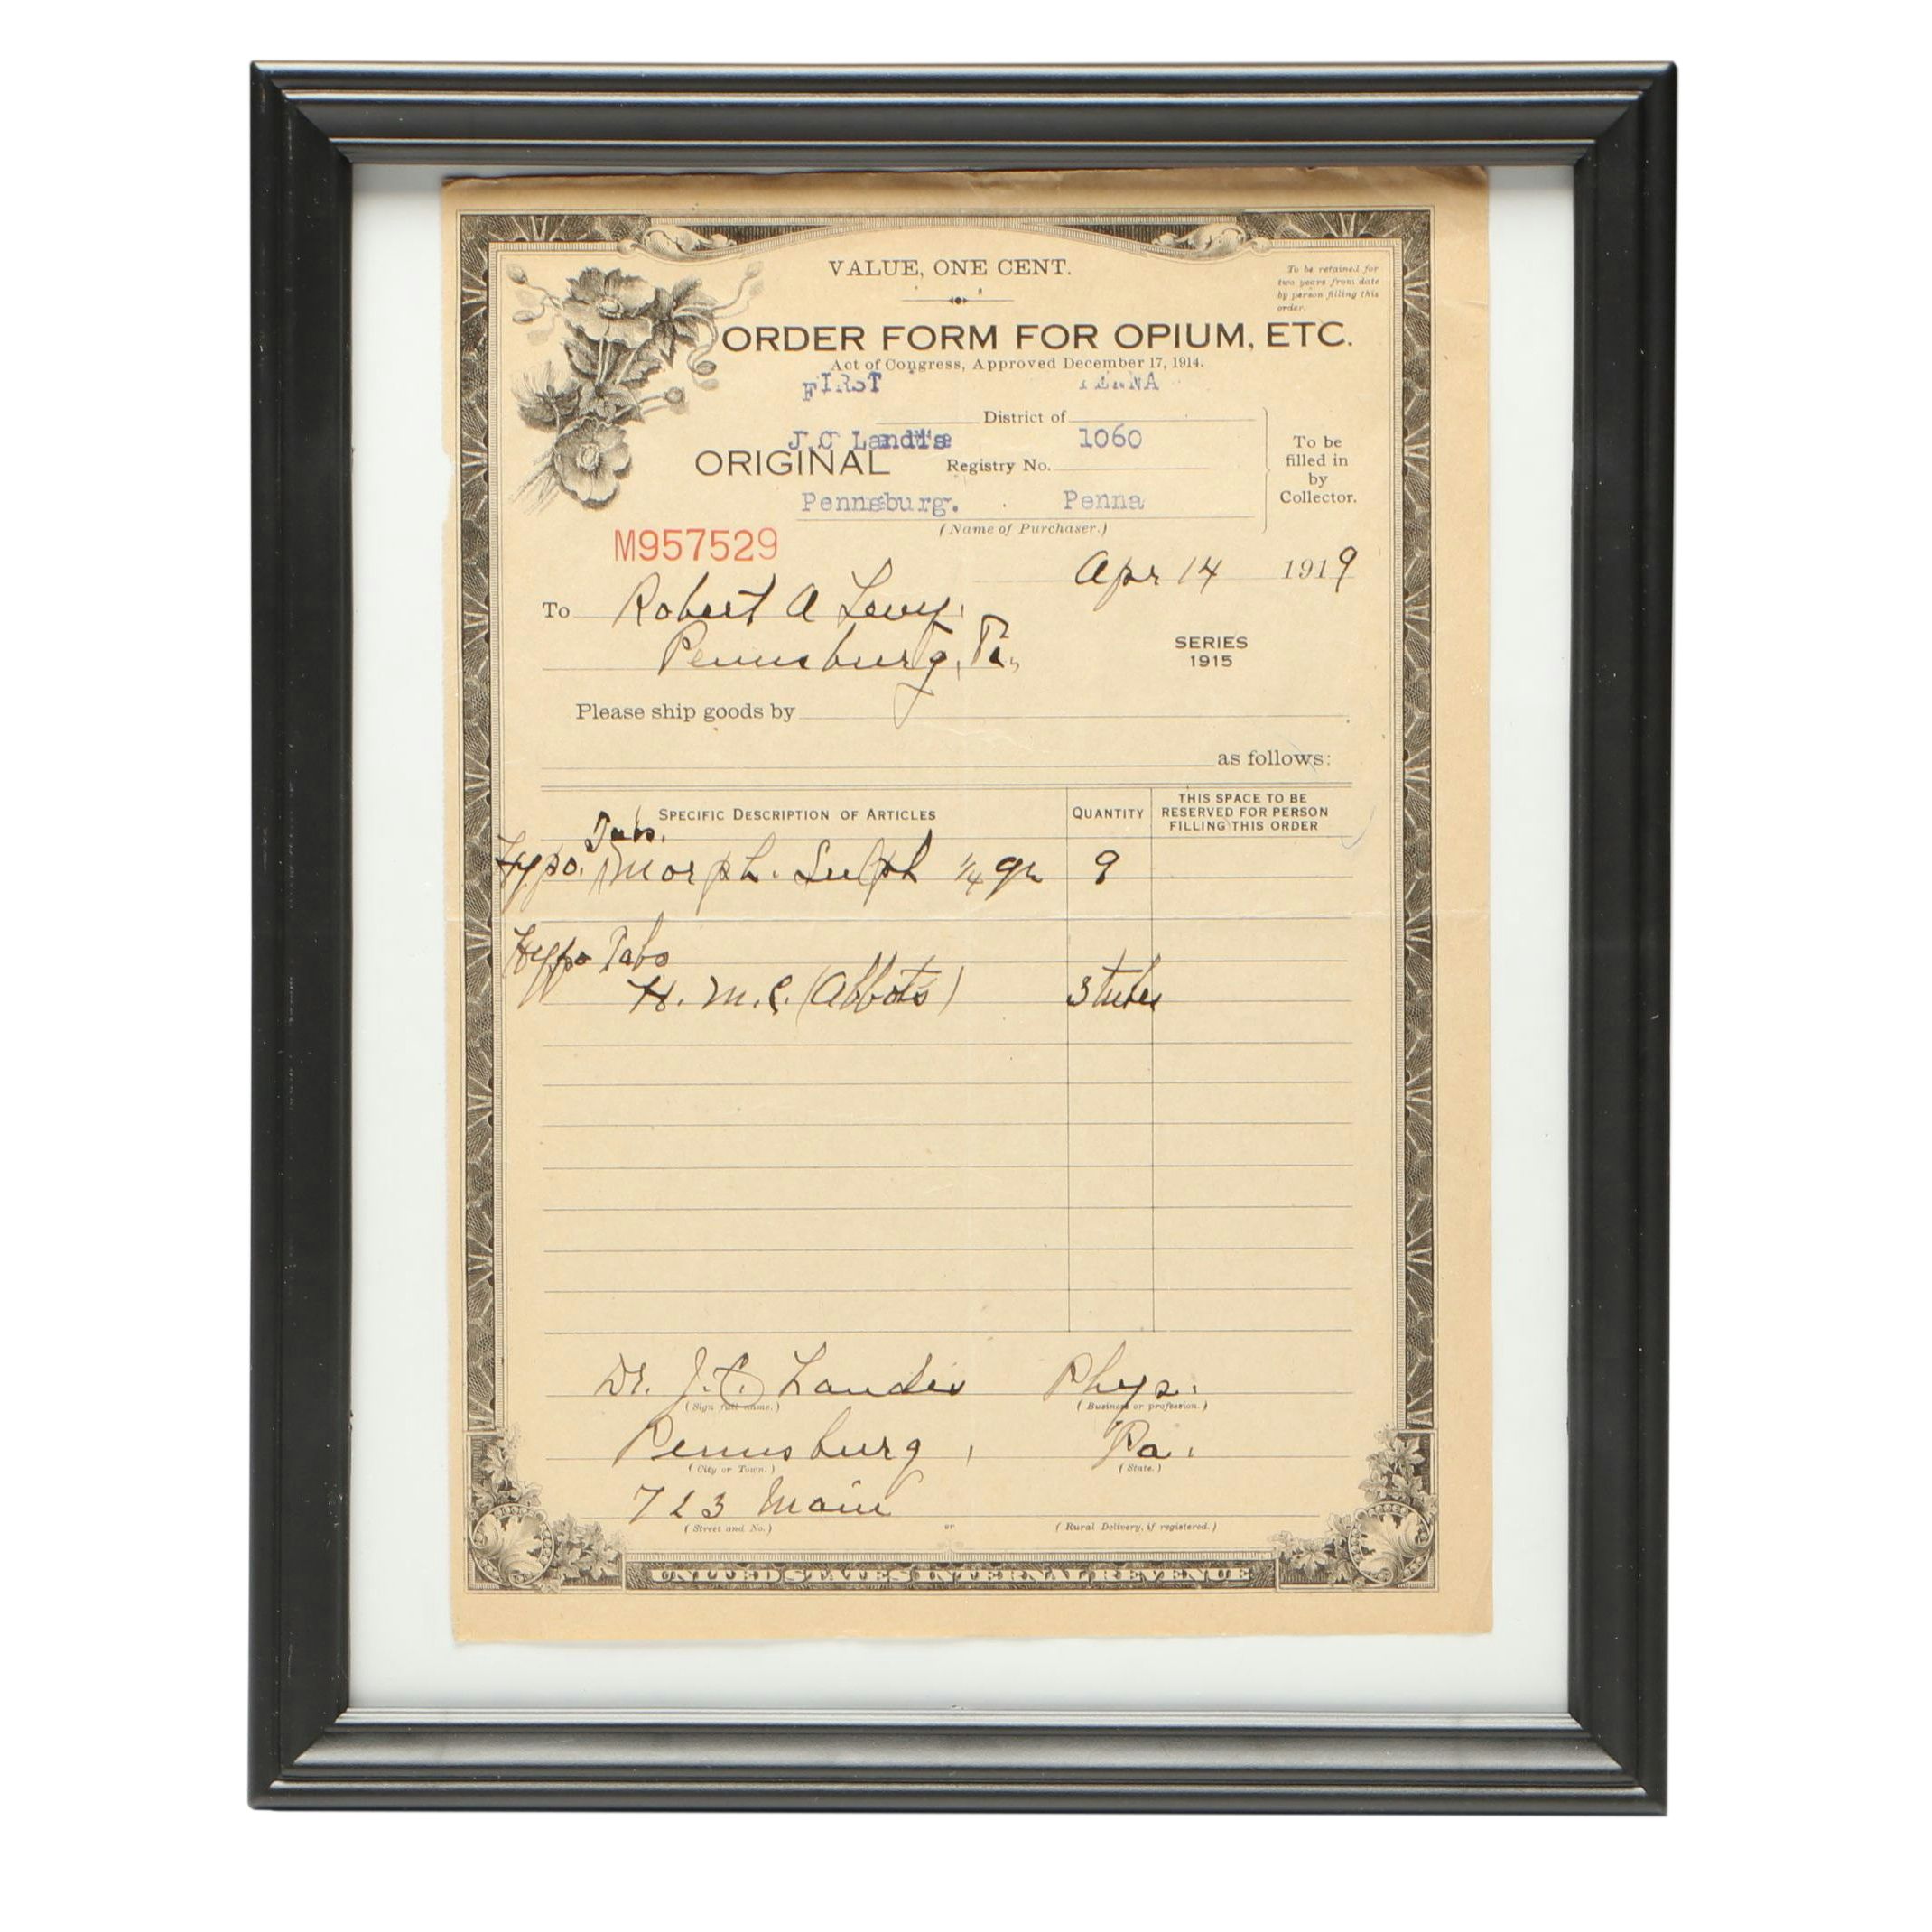 VALUE, ONE CENT.
To be retained for
two years from date
by person filling this
order.
ORDER FORM FOR OPIUM, ETC.
Act of Congress, Approved December 17, 1914.
FIRST PENNA
District of
J.C Landis 1060
ORIGINAL Registry No.
To be
filled in
by
Collector.
Pennsburg. Penna
(Name of Purchaser.)
M957529
Apr 14 1919
To Robert A Levy,
Pennsburg, Pa,
SERIES
1915
Please ship goods by
as follows:
SPECIFIC DESCRIPTION OF ARTICLES QUANTITY THIS SPACE TO BE
RESERVED FOR PERSON
FILLING THIS ORDER
Tabs.
Hypo. Morph. Sulph 1/4 gr 9
Hypo Tabs
H. M. C. (Abbots) 3 tubes
Dr. J. C. Landis Phys.
(Sign full name.) (Business or profession.)
Pennsburg, Pa.
(City or Town.) (State.)
723 Main
(Street and No.) or (Rural Delivery, if registered.)
UNITED STATES INTERNAL REVENUE